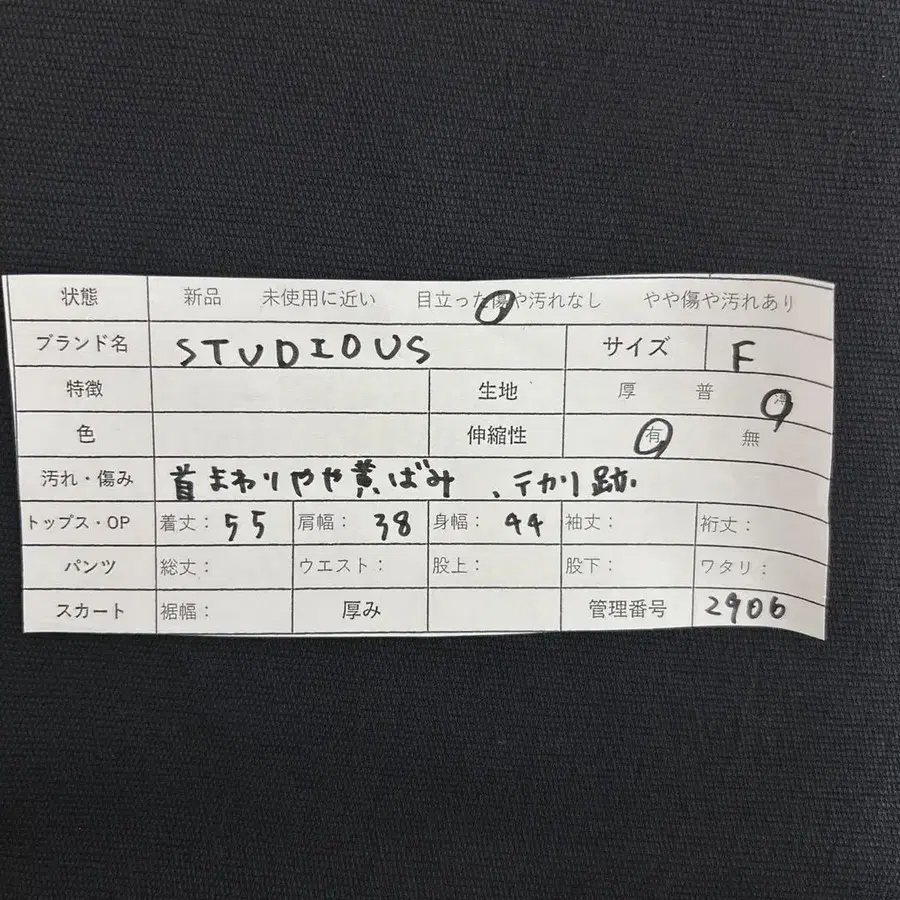 状態 新品 未使用に近い 目立った傷や汚れなし やや傷や汚れあり
ブランド名 STUDIOUS サイズ F
特徴 生地 厚 普 薄
色 伸縮性 有 無
汚れ・傷み 首まわりやや黄ばみ、テカリ跡
トップス・OP 着丈: 55 肩幅: 38 身幅: 44 袖丈: 裄丈:
パンツ 総丈: ウエスト: 股上: 股下: ワタリ:
スカート 裾幅: 厚み 管理番号 2906